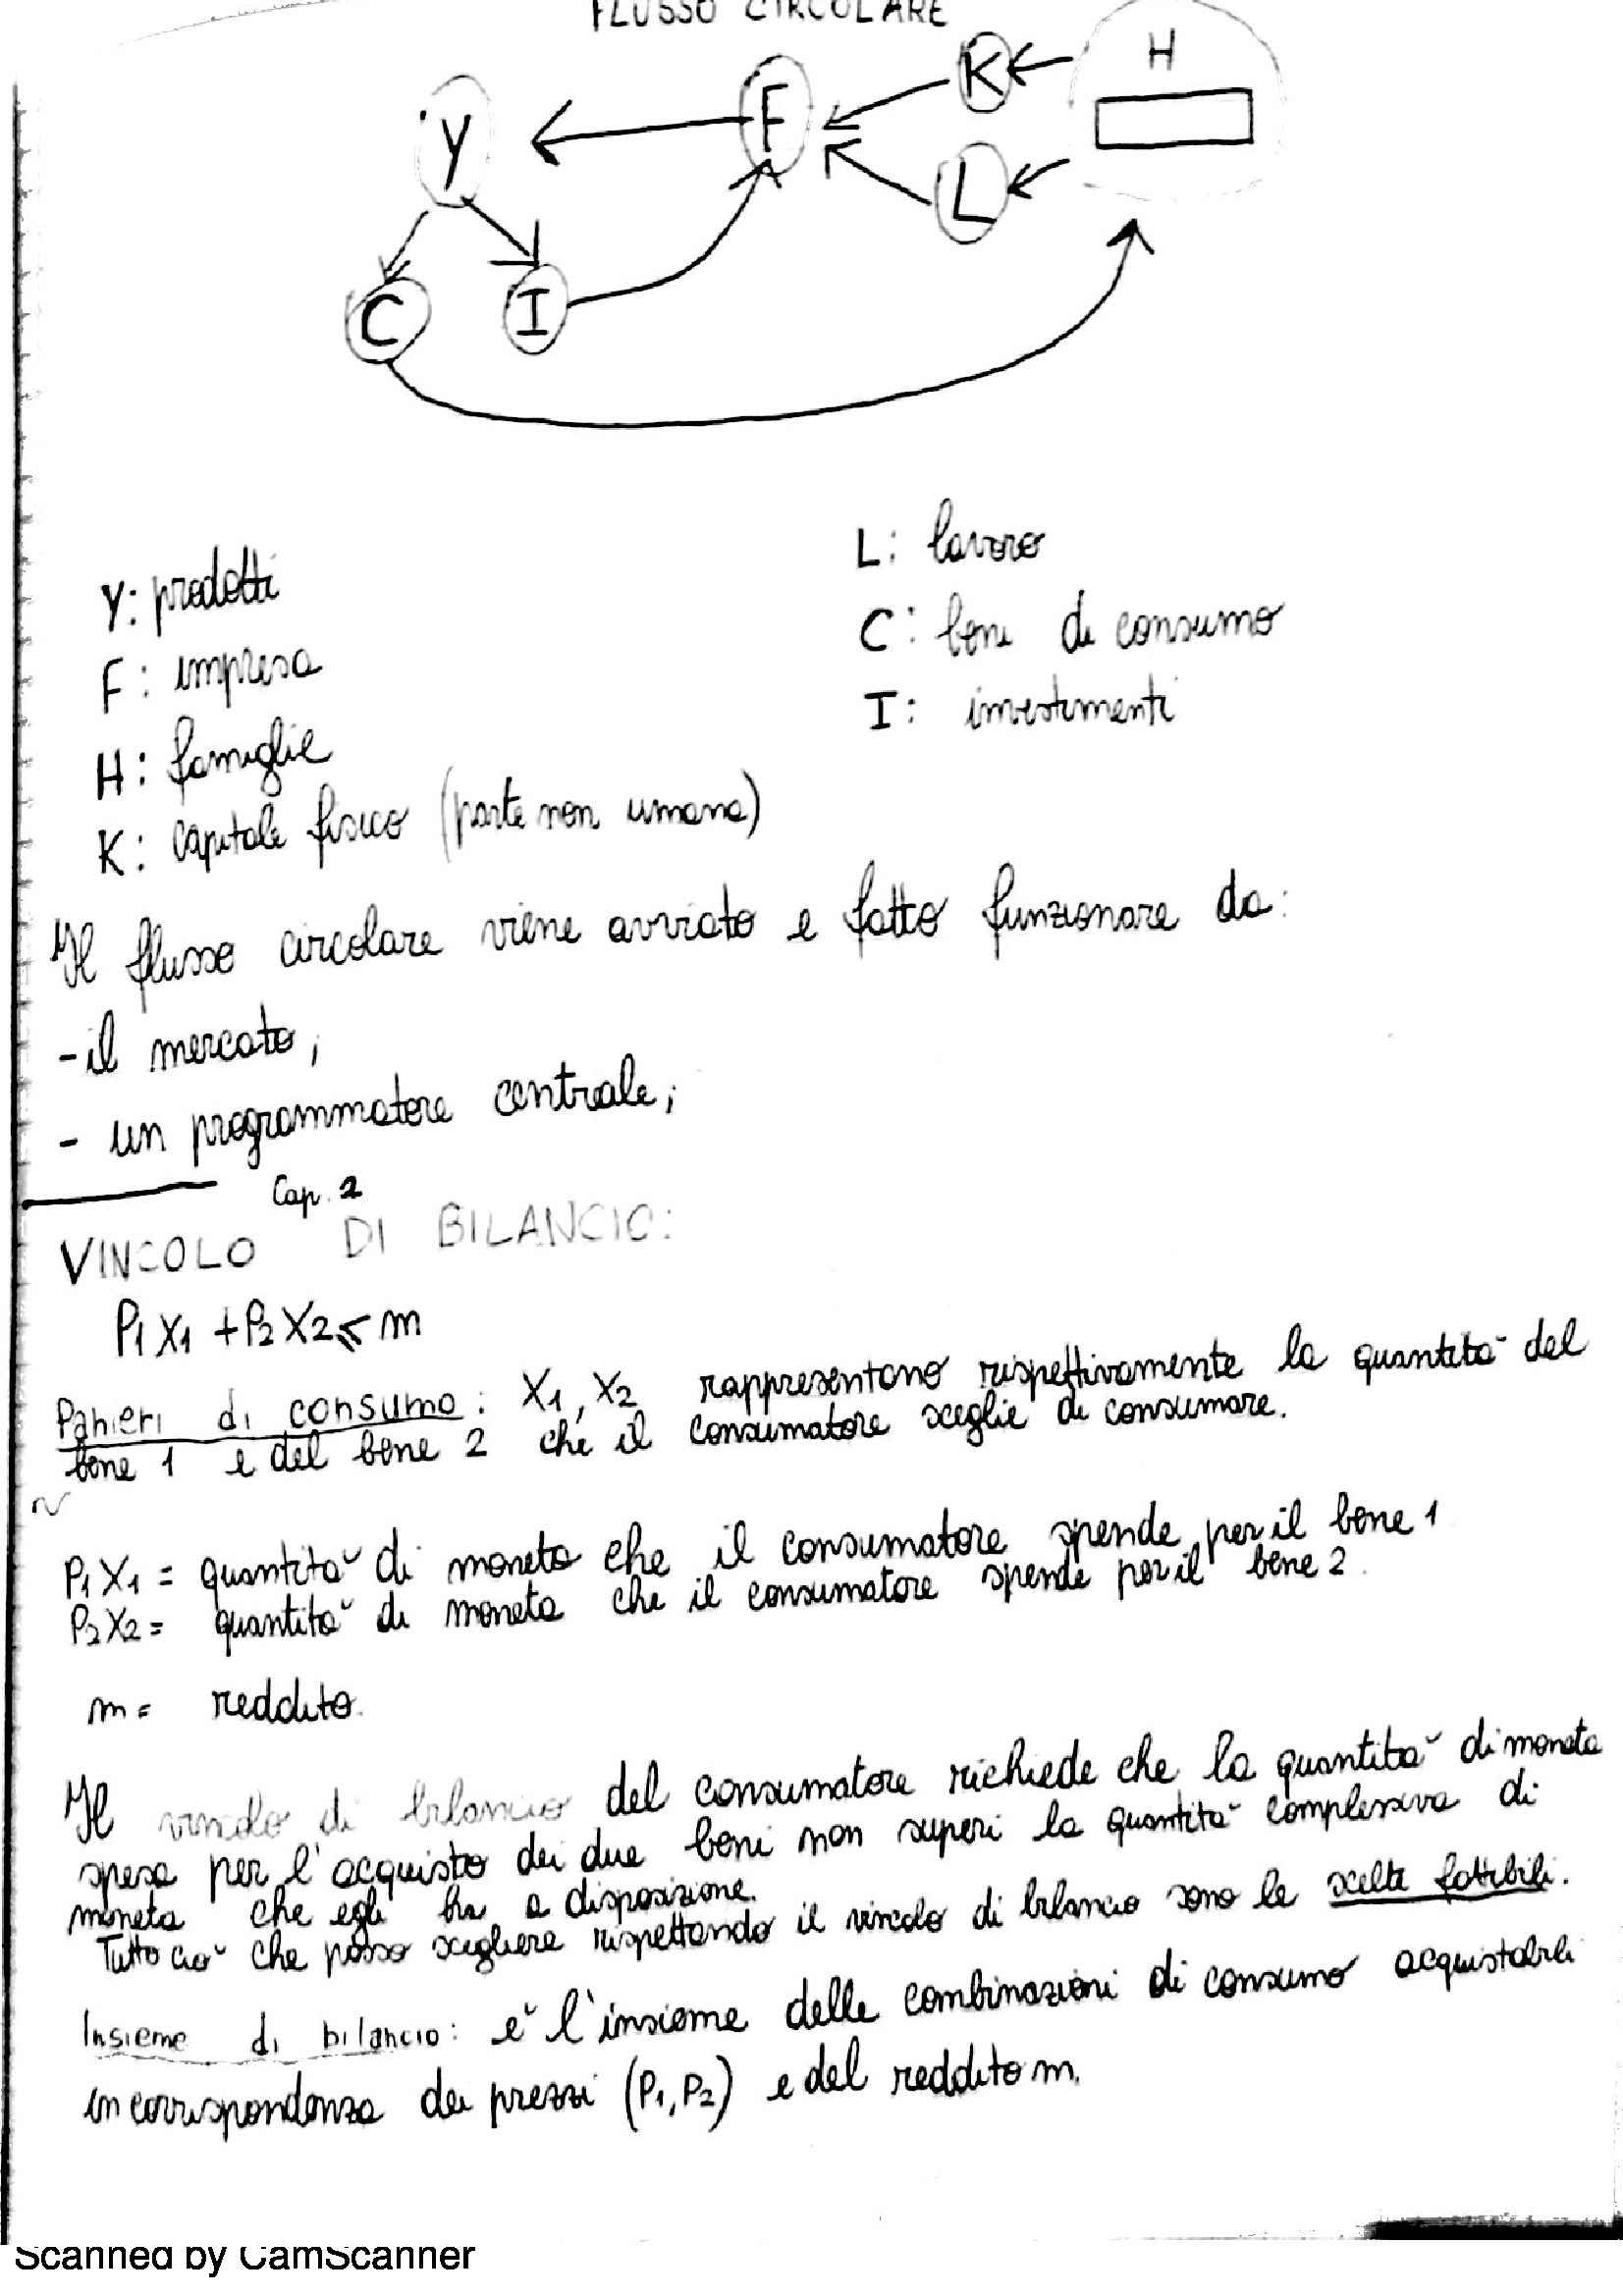 FLUSSO CIRCOLARE
H
K
F
Y
L
C
I
Y: prodotti
F: impresa
H: famiglie
K: capitale fisico (parte non umana)
L: lavoro
C: beni di consumo
I: investimenti
Il flusso circolare viene avviato e fatto funzionare da:
- il mercato;
- un programmatore centrale;
Cap. 2
VINCOLO DI BILANCIO:
P1 X1 + P2 X2 ⩽ m
Panieri di consumo: X1, X2 rappresentano rispettivamente la quantità del
bene 1 e del bene 2 che il consumatore sceglie di consumare.
P1 X1 = quantità di moneta che il consumatore spende per il bene 1
P2 X2 = quantità di moneta che il consumatore spende per il bene 2.
m = reddito.
Il vincolo di bilancio del consumatore richiede che la quantità di moneta
spesa per l'acquisto dei due beni non superi la quantità complessiva di
moneta che egli ha a disposizione.
Tutto ciò che posso scegliere rispettando il vincolo di bilancio sono le scelte fattibili.
Insieme di bilancio: è l'insieme delle combinazioni di consumo acquistabili
in corrispondenza dei prezzi (P1, P2) e del reddito m.
Scanned by CamScanner